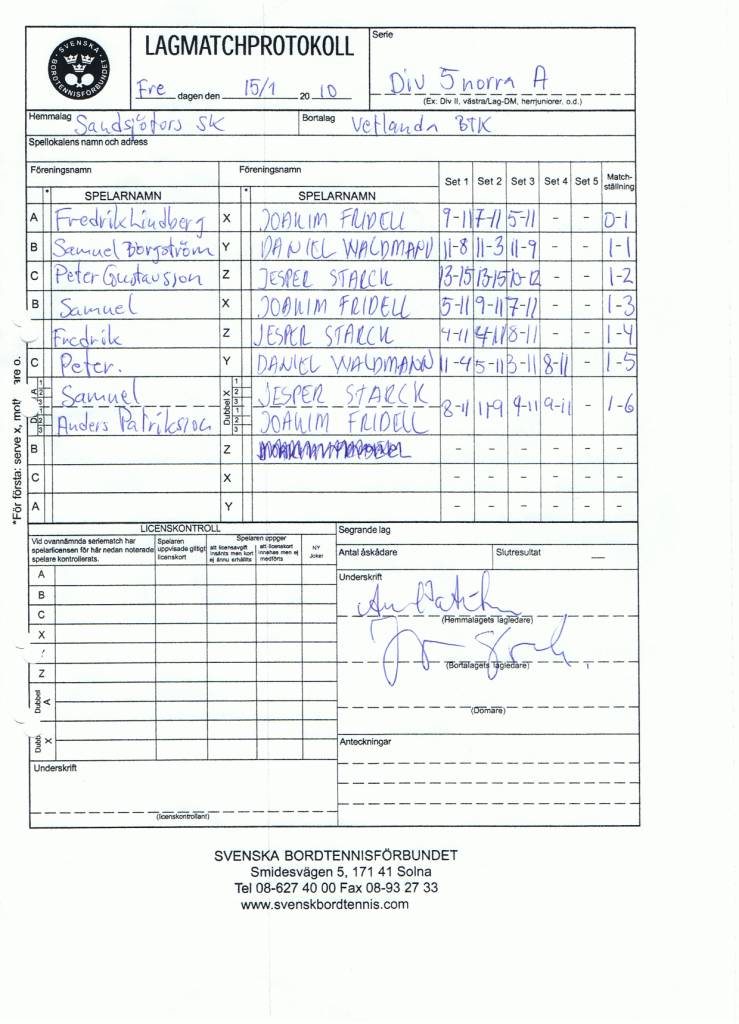 SVENSKA
BORDTENNISFÖRBUNDET
LAGMATCHPROTOKOLL
Fre dagen den 15/1 2010
Serie
Div 5 norra A
(Ex: Div II, västra/Lag-DM, herrjuniorer. o.d.)
Hemmalag Sandsjöfors SK Bortalag Vetlanda BTK
Spellokalens namn och adress
Föreningsnamn Föreningsnamn Set 1 Set 2 Set 3 Set 4 Set 5 Match-ställning
* SPELARNAMN * SPELARNAMN
A Fredrik Lindberg X JOAKIM FRIDELL 9-11 7-11 5-11 - - 0-1
B Samuel Borgström Y DANIEL WALDMANN 11-8 11-3 11-9 - - 1-1
C Peter Gustavsson Z JESPER STARCK 13-15 13-15 10-12 - - 1-2
B Samuel X JOAKIM FRIDELL 5-11 9-11 7-11 - - 1-3
A Fredrik Z JESPER STARCK 4-11 4-11 8-11 - - 1-4
C Peter. Y DANIEL WALDMANN 11-4 5-11 3-11 8-11 - 1-5
Samuel X JESPER STARCK 8-11 11-9 9-11 9-11 - 1-6
Anders Patriksson Dubbel JOAKIM FRIDELL
B Z - - - - - -
C X - - - - - -
A Y - - - - - -
*För första: serve x,
LICENSKONTROLL
Vid ovannämnda seriematch har spelarlicensen för här nedan noterade spelare kontrollerats.
Spelaren uppvisade giltigt licenskort
Spelaren uppger
att licensavgift insänts men kort ej ännu erhållits
att licenskort innehas men ej medförts
NY Joker
A
B
C
X
Z
Dubbel A
Dubb. X
Underskrift
(licenskontrollant)
Segrande lag
Antal åskådare Slutresultat —
Underskrift
(Hemmalagets lagledare)
(Bortalagets lagledare)
(Domare)
Anteckningar
SVENSKA BORDTENNISFÖRBUNDET
Smidesvägen 5, 171 41 Solna
Tel 08-627 40 00 Fax 08-93 27 33
www.svenskbordtennis.com